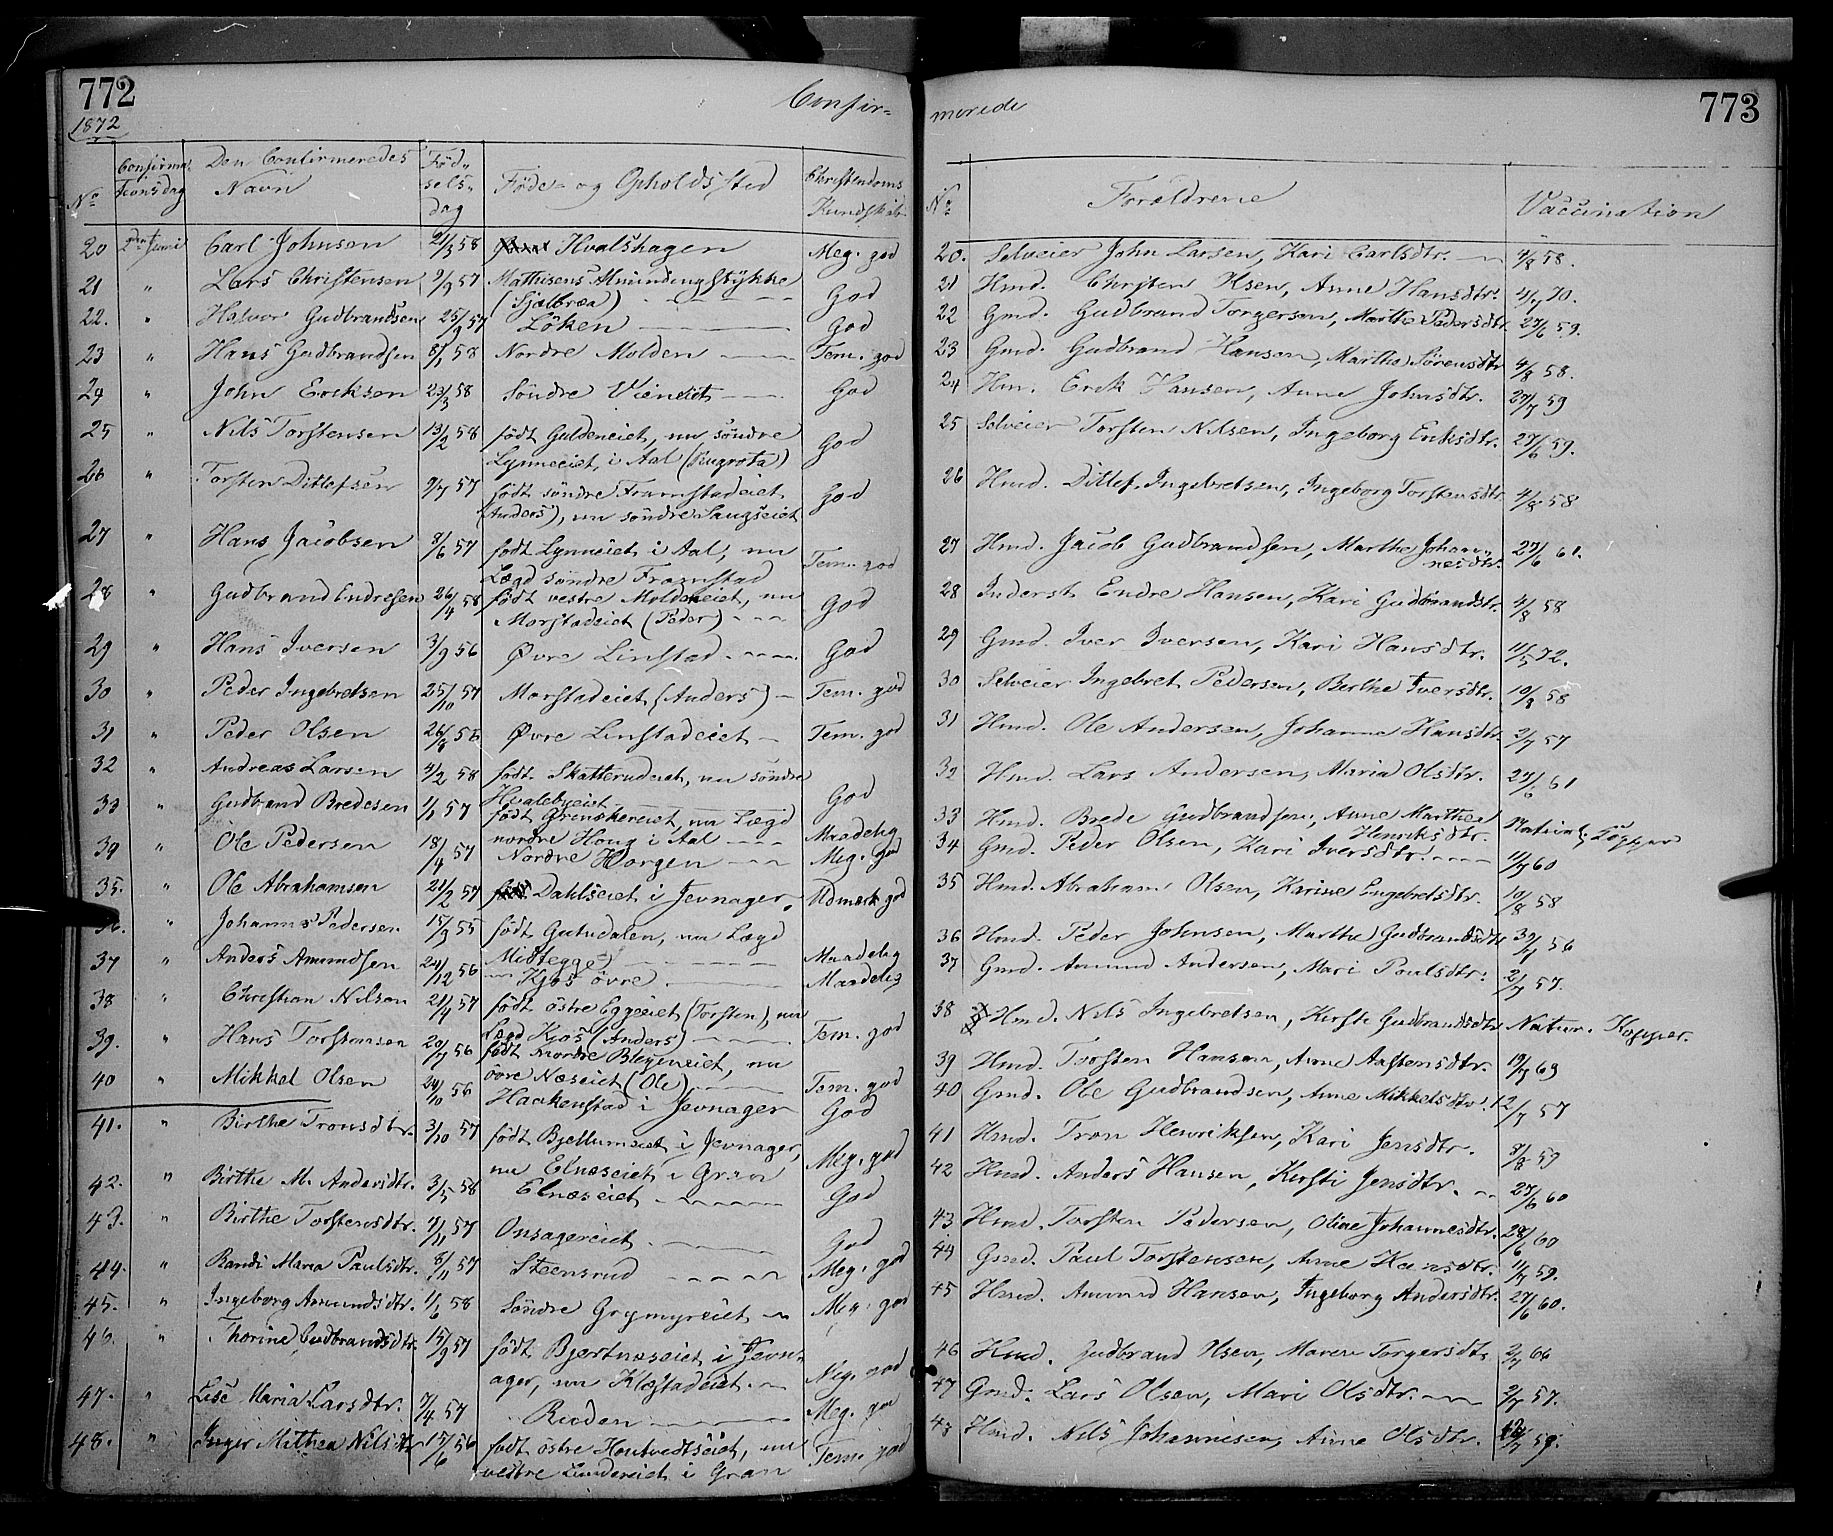 772
1872
Confir-
No
Confirmationsdag
Den Confirmeredes Navn
Fødselsdag
Føde- og Opholdssted
Christendoms Kundskab
20 2den Juni Carl Johnsen 21/3 58 Hvalshagen Meg. god
21 " Lars Christensen 9/9 57 Mathisens Almindingstykke God
(Tjælbræa)
22. " Halvor Gudbrandsen 25/9 57 Löken God
23 " Hans Gudbrandsen 8/1 58 Nordre Molden Tem. god
24 " John Eriksen 23/3 58 Söndre Vieneiet God
25 " Nils Torstensen 13/2 58 födt Guldeneiet, nu söndre God
Lynneeiet i Aal (Rugrota)
26 " Torsten Ditlefsen 9/7 57 födt söndre Framstadeiet God
(Anders), nu söndre Saugseiet
27 " Hans Jacobsen 8/6 57 födt Lynneiet i Aal, nu Tem. god
Lægd söndre Framstad
28 " Gudbrand Endresen 26/4 58 födt vestre Moldeneiet, nu God
Morstadeiet (Peder)
29 " Hans Iversen 3/9 56 Øvre Linstad God
30 " Peder Ingebretsen 25/10 57 Morstadeiet (Anders) Tem. god
31 " Peder Olsen 26/8 56 Øvre Linstadeiet Tem. god
32 " Andreas Larsen 4/2 58 födt Skatterudeiet, nu söndre God
Hvalebyeiet
33 " Gudbrand Bredesen 1/1 57 födt Grinakereiet, nu Lægd
nordre Houg i Aal Maadelig
34 " Ole Pedersen 18/4 57 Nordre Horgen Meg. god
35. " Ole Abrahamsen 21/2 57 Dahlseiet i Jevnager. Udmærk. god
36. " Johannes Pedersen 15/3 55 födt Gutudalen, nu Lægd
Midtegge Maadelig
37 " Anders Amundsen 24/12 56 Kjos övre Maadelig
38 " Christian Nilsen 21/4 57 födt östre Eggeeiet (Torsten), nu
Lægd Kjos (Anders) Tem. god
39. " Hans Torstensen 29/7 56 födt nordre Blegeneiet, nu
övre Næseiet (Ole) Tem. god
40 " Mikkel Olsen 24/10 56 Haakenstad i Jevnager God
41. " Birthe Tronsdtr. 3/10 57 födt Bjellumseiet i Jevnager,
nu Elnæseiet i Gran Meg. god
42. " Birthe M. Andersdtr. 3/5 58 Elnæseiet God
43. " Birthe Torstensdtr. 7/11 57 Onsagereiet God
44. " Randi Maria Paulsdtr. 8/11 57 Steensrud Meg. god
45. " Ingeborg Amundsdtr. 1/6 58 Söndre Grymyreiet Meg. god
46. " Thorine Gudbrandsdtr. 15/9 57 födt Bjertnæseiet i Jevn-
ager, nu Klæstadeiet Meg. god
47. " Lise Maria Larsdtr. 7/4 57 Ruden Meg. god
48. " Inger Mathea Nilsdtr 15/6 56 födt östre Hontvedtseiet, nu Tem. god
vestre Lundereiet i Gran
merede
773
No
Forældrene
Vaccination
20. Selveier John Larsen, Kari Carlsdtr. 4/8 58.
21 Hmd. Christen Olsen, Anne Hansdtr. 4/7 70.
22 Gmd. Gudbrand Torgersen, Marthe Pedersdtr 27/6 59.
23 Gmd. Gudbrand Hansen, Marthe Sörensdtr 4/8 58.
24 Hm. Erik Hansen, Anne Johnsdtr. 27/7 59
25 Selveier Torsten Nilsen, Ingeborg Eriksdtr. 27/6 59.
26 Hmd. Ditlef Ingebretsen, Ingeborg Torstensdtr. 4/8 58
27 Hmd. Jacob Gudbrandsen, Marthe Johan- 27/6 61.
nesdtr.
28 Inderst Endre Hansen, Kari Gudbrandsdtr. 4/8 58
29 Gmd. Iver Iversen, Kari Hansdtr. 11/5 72.
30 Selveier Ingebret Pedersen, Berthe Iversdtr. 19/8 58
31 Hmd. Ole Andersen, Johanne Hansdtr. 2/7 57
32 Hmd. Lars Andersen, Maria Olsdtr. 27/6 61
33 Hmd. Brede Gudbrandsen, Anne Marthea Naturl. Kopper
Henriksdtr.
34 Gmd. Peder Olsen, Kari Iversdtr. 11/7 60
35 Hmd. Abraham Olsen, Karine Engebretsdtr. 19/8 58
36 Hmd. Peder Johnsen, Marthe Gudbrandsdtr 30/7 56
37 Gmd. Amund Andersen, Mari Paulsdtr. 2/7 57.
38 Hmd. Nils Ingebretsen, Kirsti Gudbrandsdtr Natur. Kopper.
39 Hmd. Torsten Hansen, Anne Aastensdtr. 19/9 63
40 Gmd. Ole Gudbrandsen, Anne Mikkelsdtr. 12/7 57
41 Hmd. Tron Henriksen, Kari Jensdtr. 3/8 59
42 Hmd. Anders Hansen, Kirsti Jensdtr. 27/6 60
43 Hmd. Torsten Pedersen, Oline Johannesdtr. 28/6 60
44 Gmd. Paul Torstensen, Anne Hansdtr. 11/7 59.
45 Hmd. Amund Hansen, Ingeborg Andersdtr. 27/6 60.
46 Hmd. Gudbrand Olsen, Maren Torgersdtr 2/7 66
47 Gmd. Lars Olsen, Mari Olsdtr. 2/7 57.
48 Hmd. Nils Johannesen, Anne Olsdtr. 12/7 59.